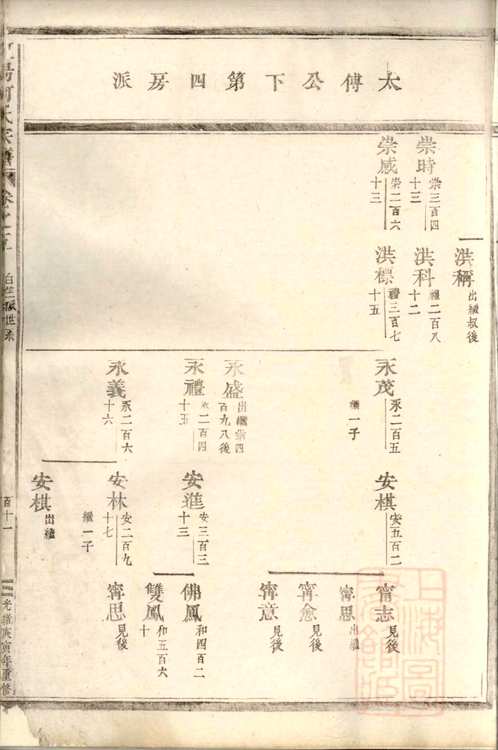 太傅公下第四房派
崇時 崇三百四十三
崇咸 崇二百六十三
洪稱 出繼叔後
洪科 禮二百八十二
洪標 禮三百七十五
永茂 永二百五 繼一子
永盛 出繼崇四百九八後
永禮 永二百四十五
永義 永二百六十六
安棋 安五百二
安進 安三百三十三
安林 安二百九十七 繼一子
安棋 出繼
甯志 見後
甯思 出繼
甯愈 見後
甯意 見後
佛鳳 和四百二
雙鳳 和五百六十
甯思 見後
何氏宗譜 卷之五
世系
百十一
光緒庚寅年重修